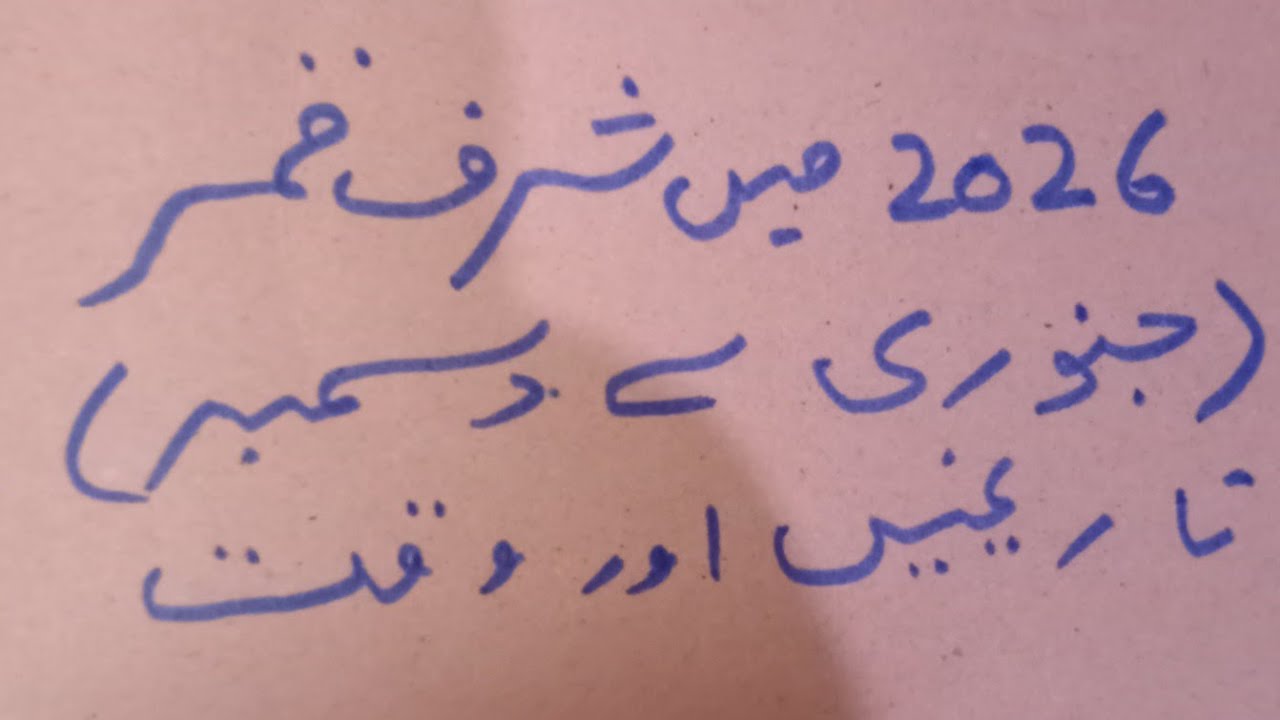 2026 میں شرف قمر
(جنوری سے دسمبر)
تاریخیں اور وقت